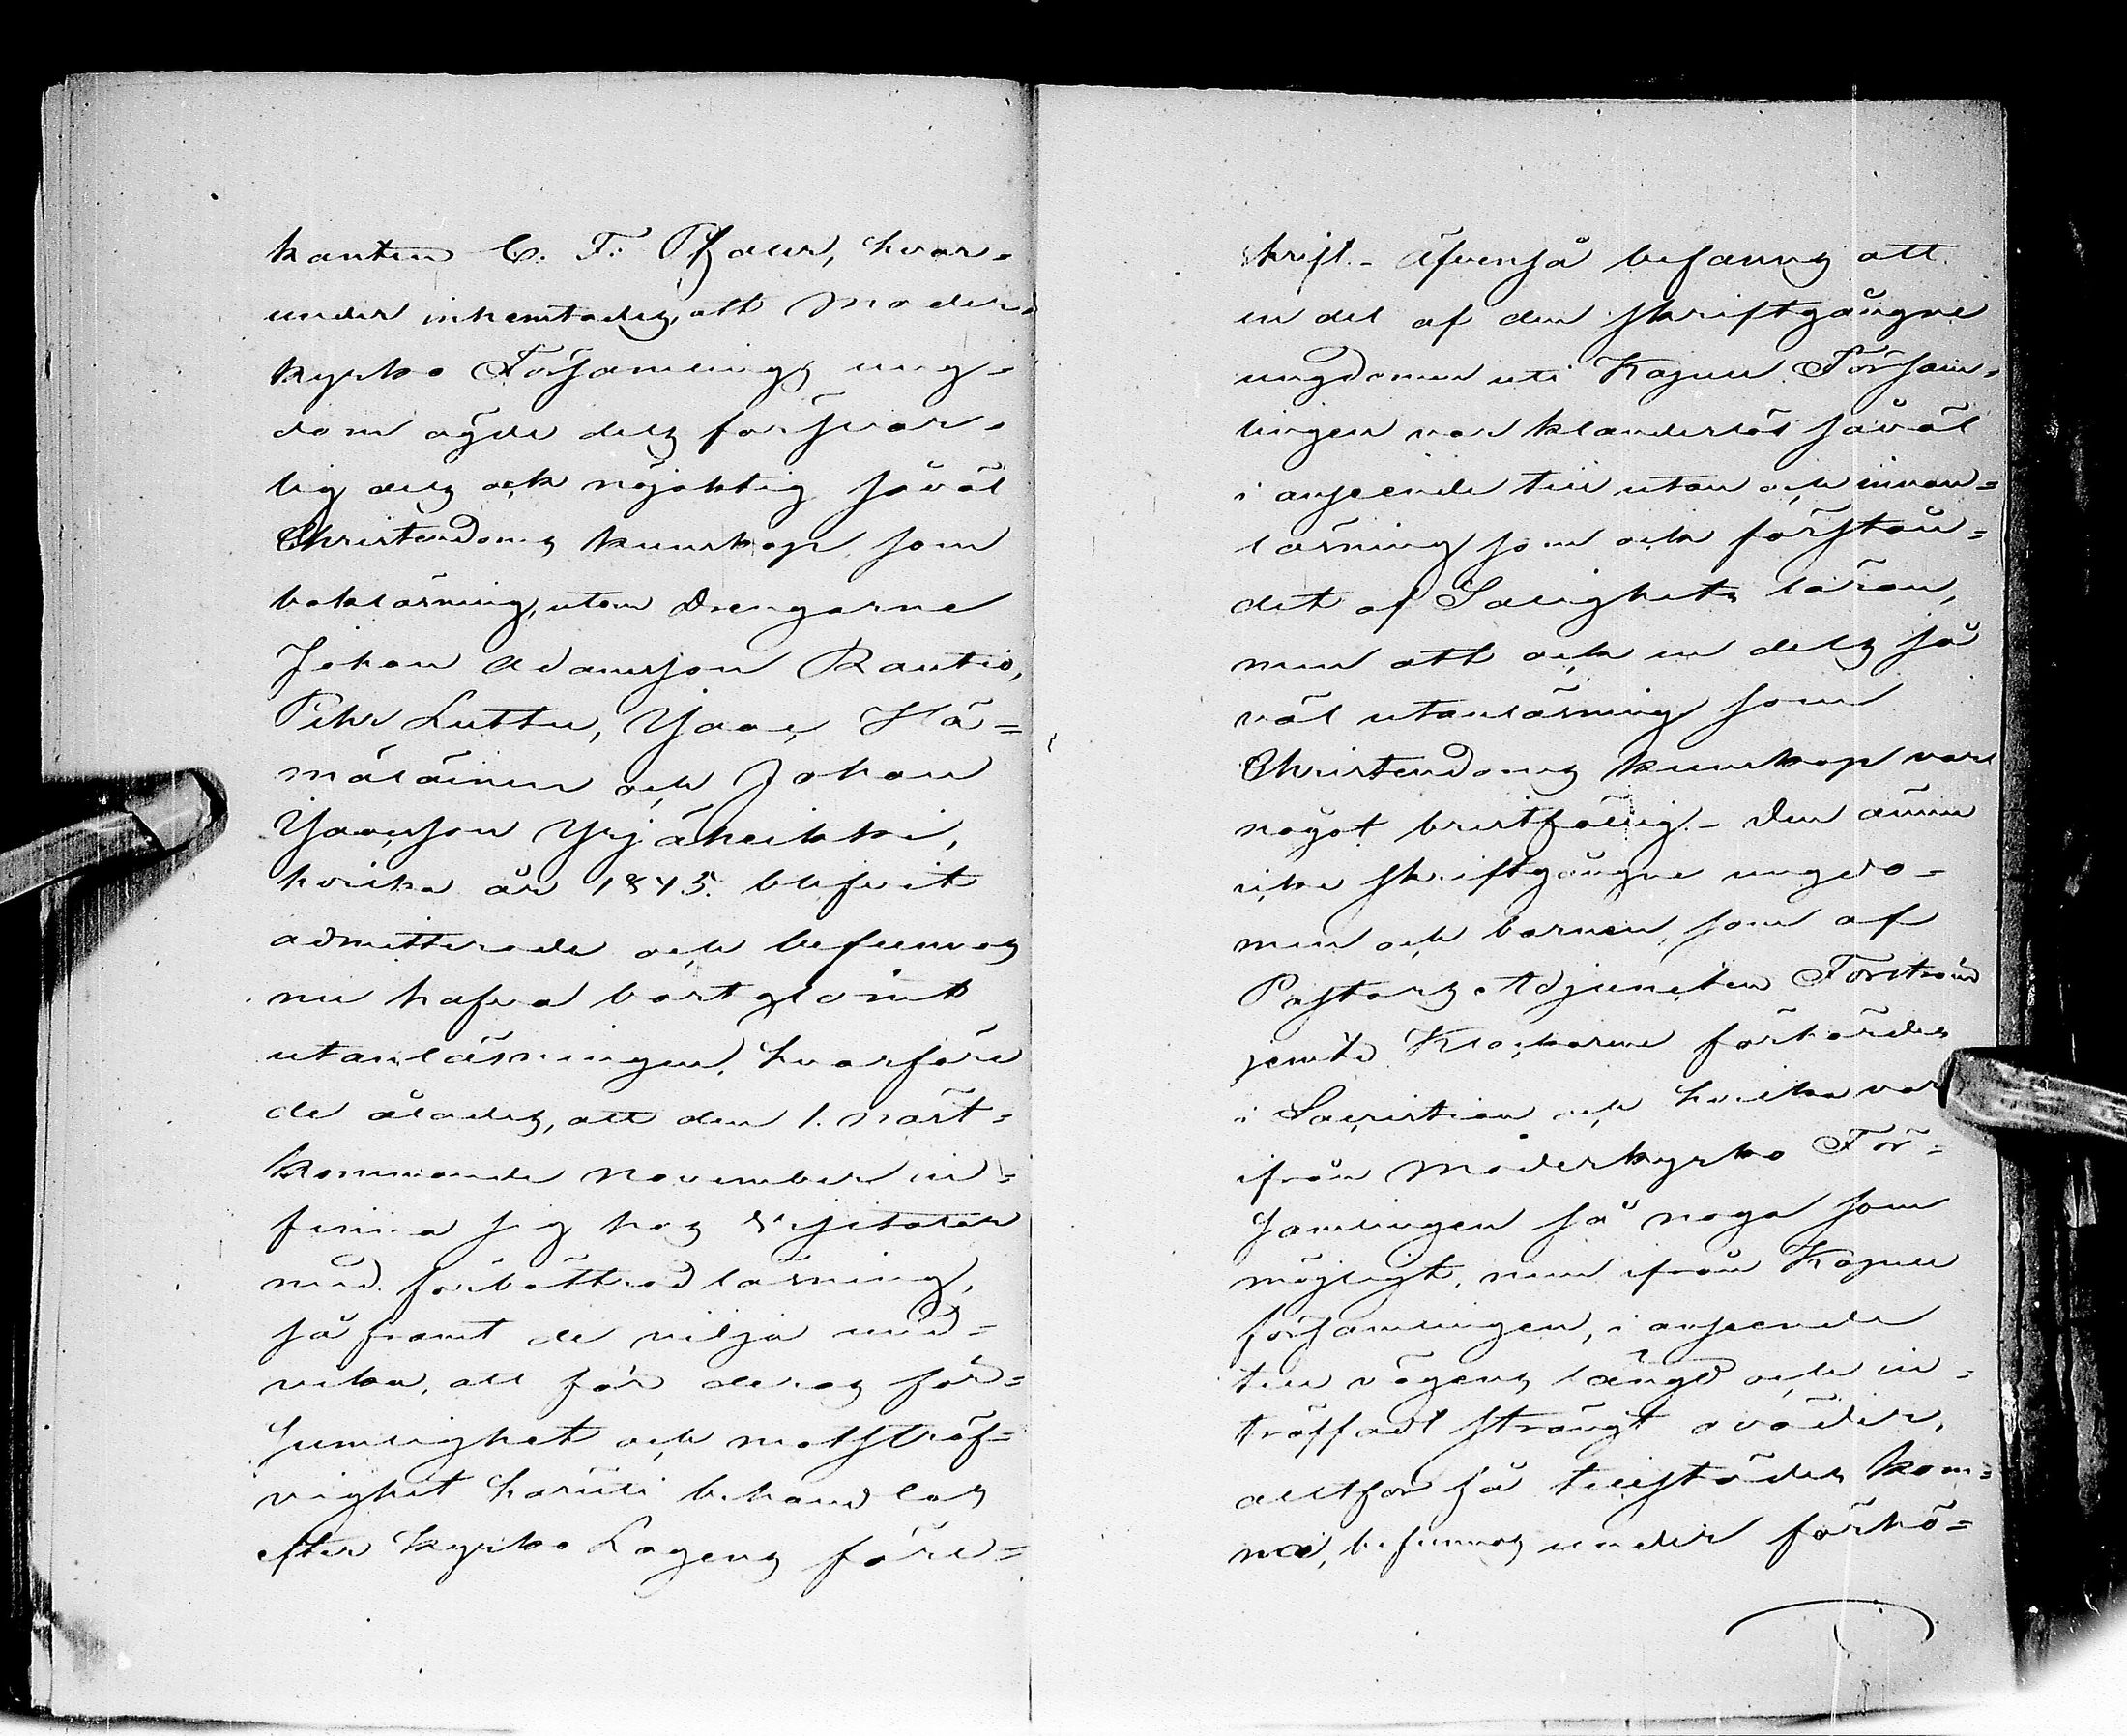 kanten C. F. Pfaler, hvar-
under inhemtades, att Moder-
kyrko Församlings ung-
dom ägde dels försvar-
lig dels ock nöjaktig såväl
Christendoms kunskap som
bokläsning, utom Drengarne
Johan Adamsson Rautio,
Pehr Luttu, Isaac Hä=
mäläinen och Johan
Isaacsson Yrjänheikki,
hvilka år 1845. blefvit
admitterade och befunnos
nu hafva bortglömt
utanläsningen, hvarföre
de ålades, att den 1. näst=
kommande November in=
finna sig hos Visitator
med förbättrad läsning,
så framt de vilja und=
vika, att för deras för=
sumlighet och motsträf=
vighet häruti behandlas
efter Kyrko Lagens före=
skrift. - Äfvenså befanns att
en del af den skriftgångne
ungdomen uti Kapell Försam-
lingen var klanderlös såväl
i anseende till utan och innan=
läsning som och förstån=
det af Salighets läran,
men att och en dels så
väl utanläsning som
Christendoms kunskap vore
något bristfällig. - Den ännu
icke skriftgångne ungdo=
men och barnen, som af
Pastors Adjuncten Forström
jemte Klockarene förhördes
i Sacristian och hvilka voro
ifrån Moderkyrko För=
samlingen så noga som
möjligt, men ifrån Kapell
församlingen, i anseende
till vägens längd och in=
träffadt strängt oväder,
alltför få tillstädes kom=
na, befunnos under förhö=